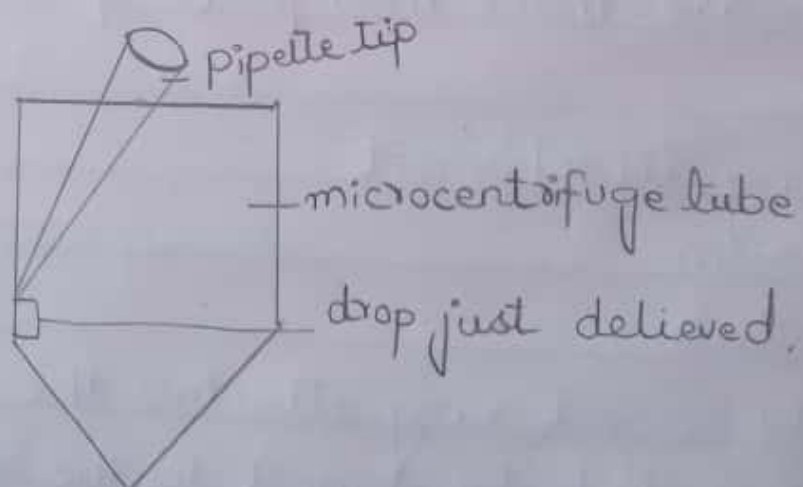 pipette tip
microcentrifuge tube
drop just delieved.